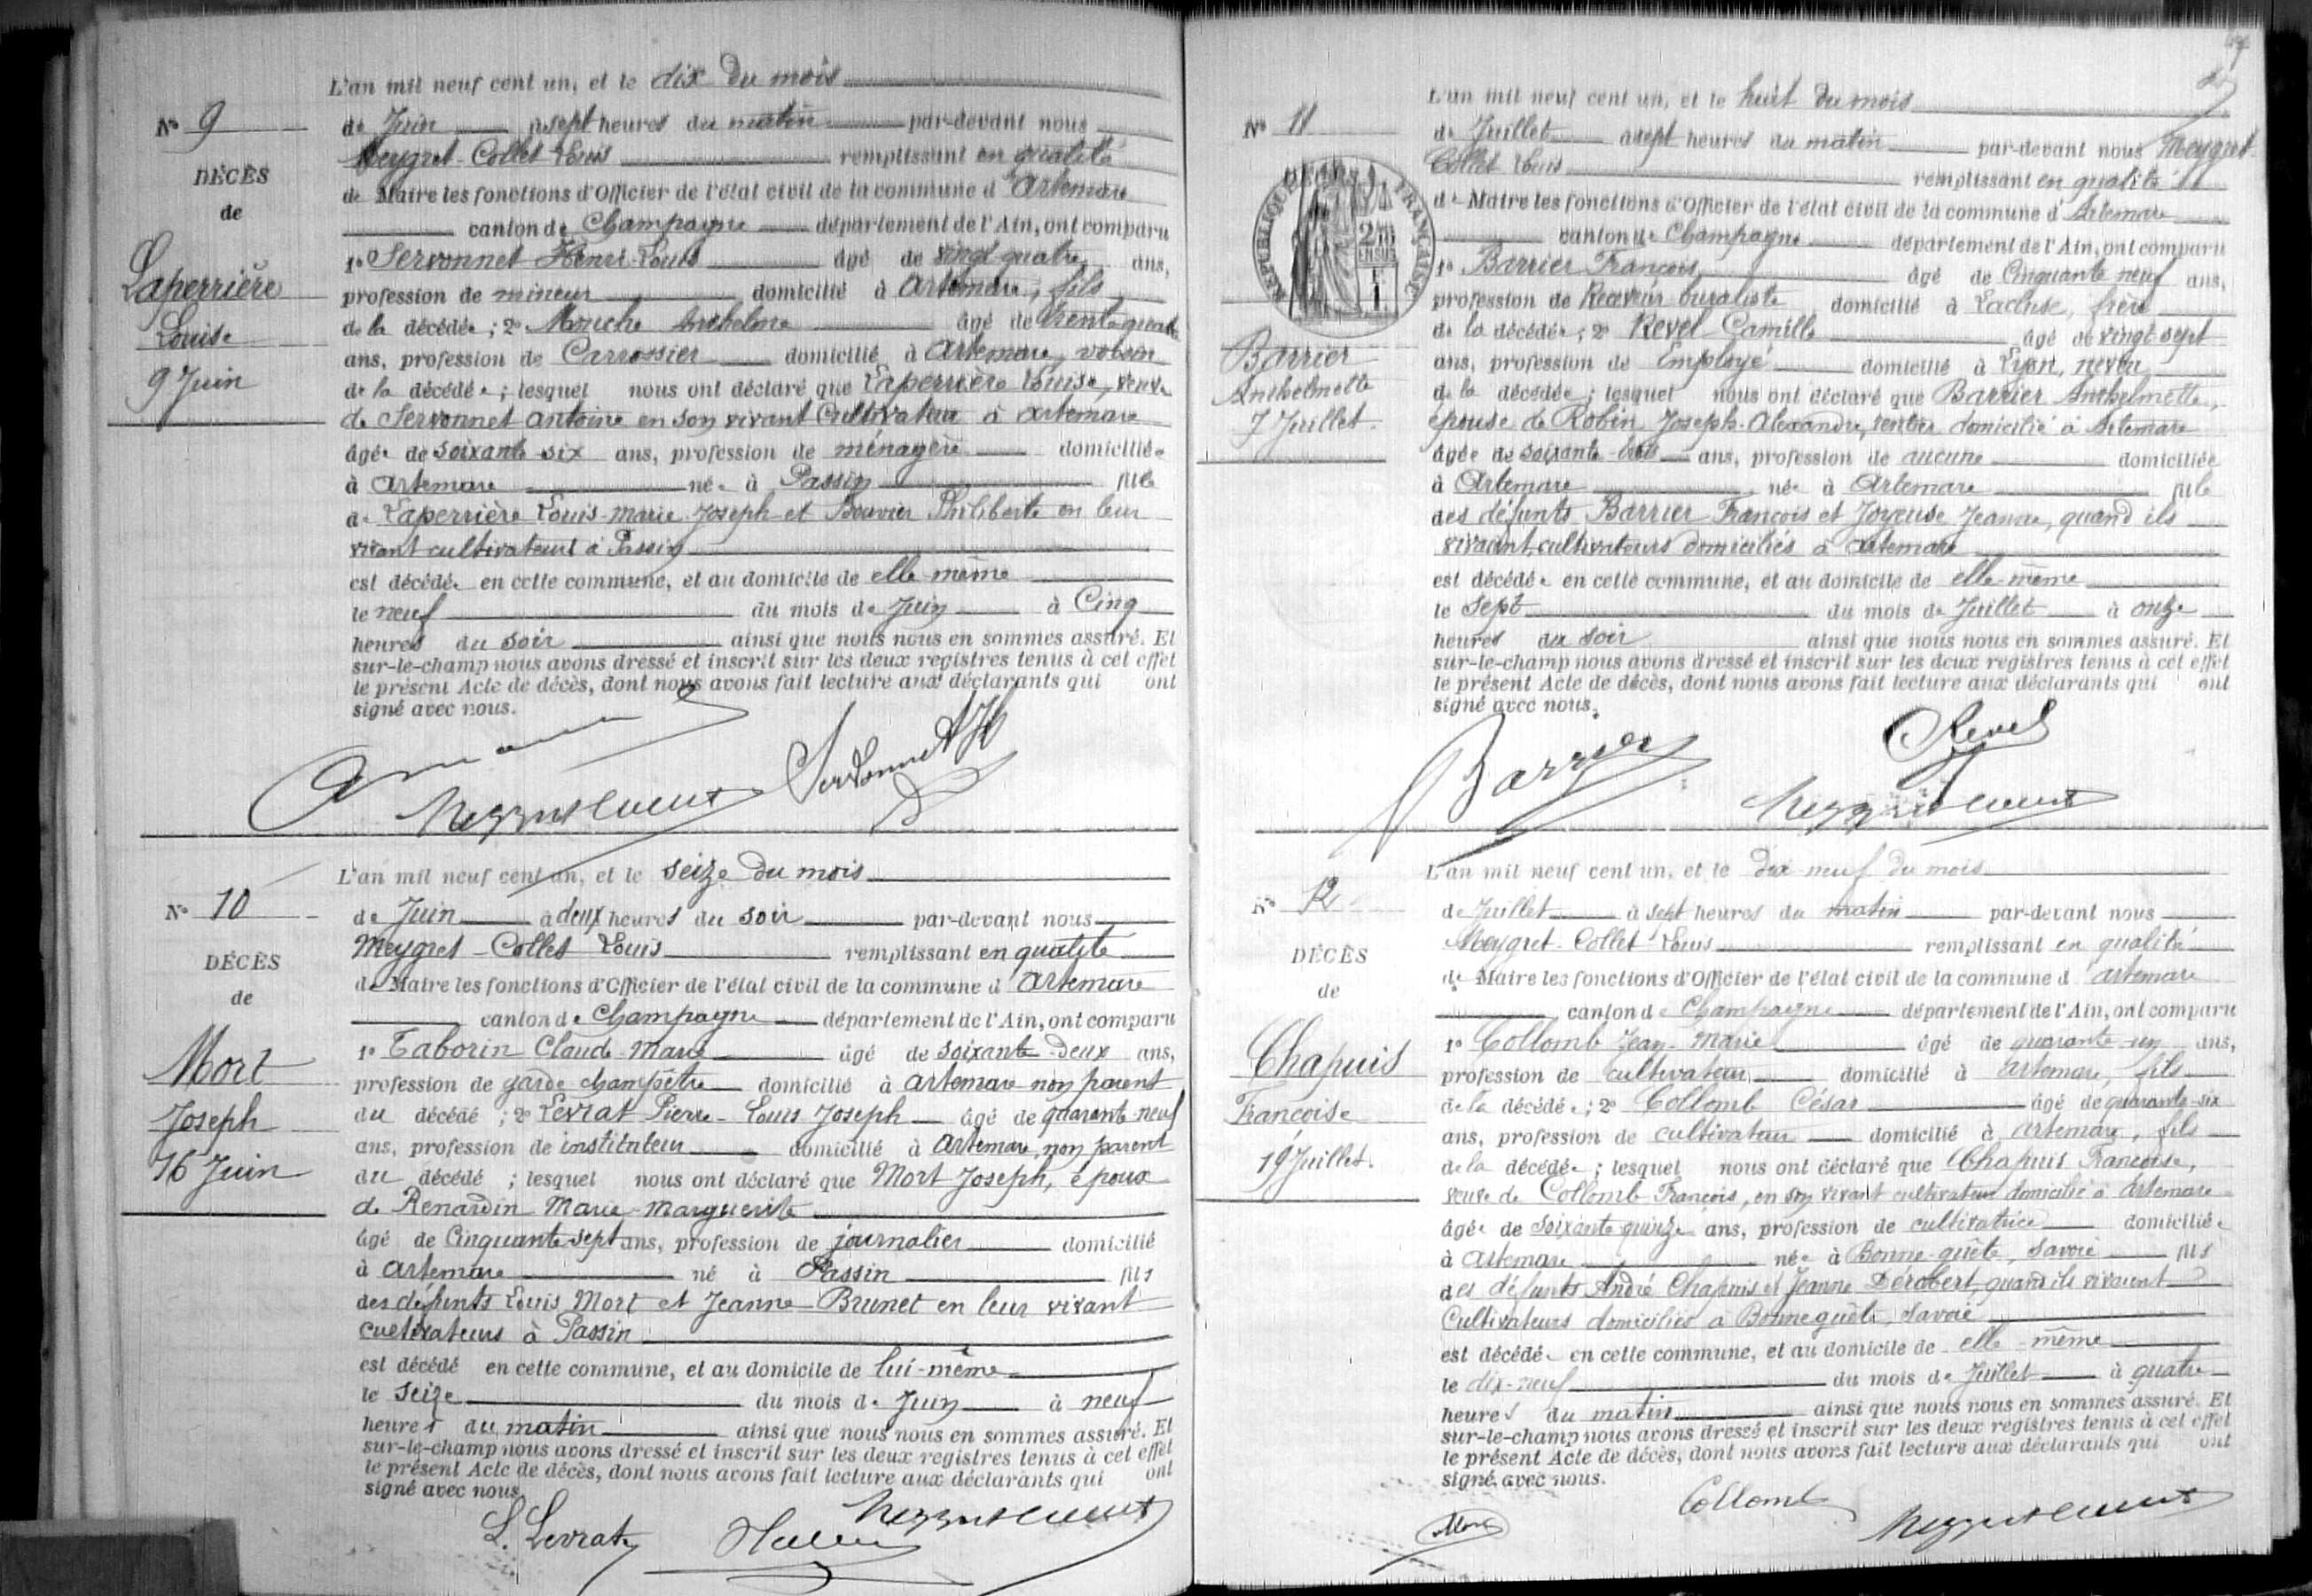 L'an mil neuf cent un, et le dix du mois
N° 9
de Juin à sept heures du matin par-devant nous
Meygret-Collet Louis remplissant en qualité
DÉCÈS
de Maire les fonctions d'Officier de l'état civil de la commune d'Artemare
de
canton de Champagne département de l'Ain, ont comparu
1° Servonnet Henri-Louis âgé de vingt quatre ans,
Laperrière
profession de mineur domicilié à Artemare, fils
de la décédée ; 2° Mouche Anthelme âgé de trente quatre
Louise
ans, profession de Carrossier domicilié à Artemare, voisin
9 Juin
de la décédée ; lesquels nous ont déclaré que Laperrière Louise, veuve
de Servonnet Antoine en son vivant Cultivateur à Artemare
âgée de soixante six ans, profession de ménagère domiciliée
à Artemare née à Passin fille
de Laperrière Louis Marie Joseph et Bouvier Philiberte en leur
vivant cultivateurs à Passin
est décédée en cette commune, et au domicile de elle-même
le neuf du mois de Juin à Cinq
heures du soir ainsi que nous nous en sommes assuré. Et
sur-le-champ nous avons dressé et inscrit sur les deux registres tenus à cet effet
le présent Acte de décès, dont nous avons fait lecture aux déclarants qui ont
signé avec nous.
Servonnet
L'an mil neuf cent un, et le seize du mois
N° 10
de Juin à deux heures du soir par-devant nous
Meygret-Collet Louis remplissant en qualité
DÉCÈS
de Maire les fonctions d'Officier de l'état civil de la commune d'Artemare
de
canton de Champagne département de l'Ain, ont comparu
1° Taborin Claude-Marie âgé de soixante-deux ans,
Mort
profession de garde champêtre domicilié à Artemare non parent
Joseph
du décédé ; 2° Levrat Pierre-Louis Joseph âgé de quarante-neuf
ans, profession de instituteur domicilié à Artemare, non parent
16 Juin
du décédé ; lesquels nous ont déclaré que Mort Joseph, époux
de Renardin Marie-Marguerite
âgé de Cinquante-sept ans, profession de journalier domicilié
à Artemare né à Passin fils
des défunts Louis Mort et Jeanne Brunet en leur vivant
cultivateurs à Passin
est décédé en cette commune, et au domicile de lui-même
le seize du mois de Juin à neuf
heures du matin ainsi que nous nous en sommes assuré. Et
sur-le-champ nous avons dressé et inscrit sur les deux registres tenus à cet effet
le présent Acte de décès, dont nous avons fait lecture aux déclarants qui ont
signé avec nous.
L. Levrat
L'an mil neuf cent un, et le huit du mois
N° 11
de Juillet à sept heures du matin par-devant nous Meygret-
Collet Louis remplissant en qualité
RÉPUBLIQUE FRANÇAISE
2/10 EN SUS
de Maire les fonctions d'Officier de l'état civil de la commune d'Artemare
canton de Champagne département de l'Ain, ont comparu
1° Barrier François âgé de Cinquante neuf ans,
profession de Receveur buraliste domicilié à Lacluse, frère
de la décédée ; 2° Revel Camille âgé de vingt sept
Barrier
ans, profession de Employé domicilié à Lyon, neveu
Anthelmette
de la décédée ; lesquels nous ont déclaré que Barrier Anthelmette,
7 Juillet.
épouse de Robin Joseph-Alexandre, rentier domicilié à Artemare
âgée de soixante-trois ans, profession de aucune domiciliée
à Artemare née à Artemare fille
des défunts Barrier François et Joyeuse Jeanne, quand ils
vivaient, cultivateurs domiciliés à Artemare
est décédée en cette commune, et au domicile de elle-même
le sept du mois de Juillet à onze
heures du soir ainsi que nous nous en sommes assuré. Et
sur-le-champ nous avons dressé et inscrit sur les deux registres tenus à cet effet
le présent Acte de décès, dont nous avons fait lecture aux déclarants qui ont
signé avec nous.
Barrier
CRevel
L'an mil neuf cent un, et le dix-neuf du mois
N° 12
de Juillet à sept heures du matin par-devant nous
Meygret-Collet Louis remplissant en qualité
DÉCÈS
de Maire les fonctions d'Officier de l'état civil de la commune d'Artemare
de
canton de Champagne département de l'Ain, ont comparu
1° Collomb Jean-Marie âgé de quarante-un ans,
Chapuis
profession de cultivateur domicilié à Artemare, fils
Françoise
de la décédée ; 2° Collomb César âgé de quarante-six
ans, profession de cultivateur domicilié à Artemare, fils
19 Juillet.
de la décédée ; lesquels nous ont déclaré que Chapuis Françoise,
veuve de Collomb François, en son vivant cultivateur domicilié à Artemare
âgée de soixante quinze ans, profession de cultivatrice domiciliée
à Artemare née à Bonne-guête, Savoie fils
des défunts André Chapuis et Jeanne Dérobert, quand ils vivaient
Cultivateurs domiciliés à Bonneguête, Savoie
est décédée en cette commune, et au domicile de elle-même
le dix-neuf du mois de Juillet à quatre
heures du matin ainsi que nous nous en sommes assuré. Et
sur-le-champ nous avons dressé et inscrit sur les deux registres tenus à cet effet
le présent Acte de décès, dont nous avons fait lecture aux déclarants qui ont
signé avec nous.
Collomb